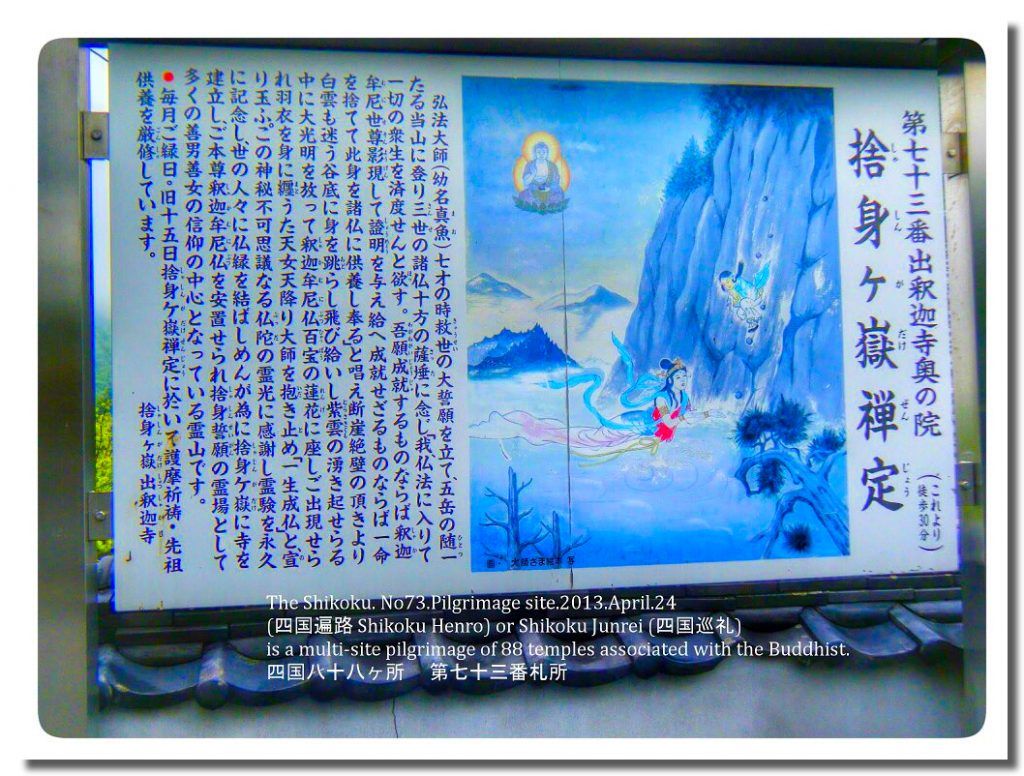 第七十三番出釈迦寺奥の院
(これより
徒歩30分)
捨身ヶ嶽禅定
弘法大師(幼名真魚)七才の時救世の大誓願を立て、五岳の随一
たる当山に登り三世の諸仏十方の薩埵に念じ我仏法に入りて
一切の衆生を済度せんと欲す。吾願成就するものならば釈迦
牟尼世尊影現して證明を与え給へ成就せざるものならば一命
を捨てて此身を諸仏に供養し奉る」と唱え断崖絶壁の頂きより
白雲も迷う谷底に身を跳らし飛び給いし紫雲の湧き起せらる
中に大光明を放って釈迦牟尼仏百宝の蓮花に座しご出現せら
れ羽衣を身に纒うた天女天降り大師を抱き止め「一生成仏」と宣
り玉ふ。この神秘不可思議なる仏陀の霊光に感謝し霊験を永久
に記念し、世の人々に仏縁を結ばしめんが為に捨身ケ嶽に寺を
建立しご本尊釈迦牟尼仏を安置せられ捨身誓願の霊場として
多くの善男善女の信仰の中心となっている霊山です。
●毎月ご縁日。旧十五日捨身ケ嶽禅定に於いて護摩祈祷・先祖
供養を厳修しています。
捨身ヶ嶽 出釈迦寺
大師さま絵本
The Shikoku. No73.Pilgrimage site.2013.April.24
(四国遍路 Shikoku Henro) or Shikoku Junrei (四国巡礼)
is a multi-site pilgrimage of 88 temples associated with the Buddhist.
四国八十八ヶ所 第七十三番札所